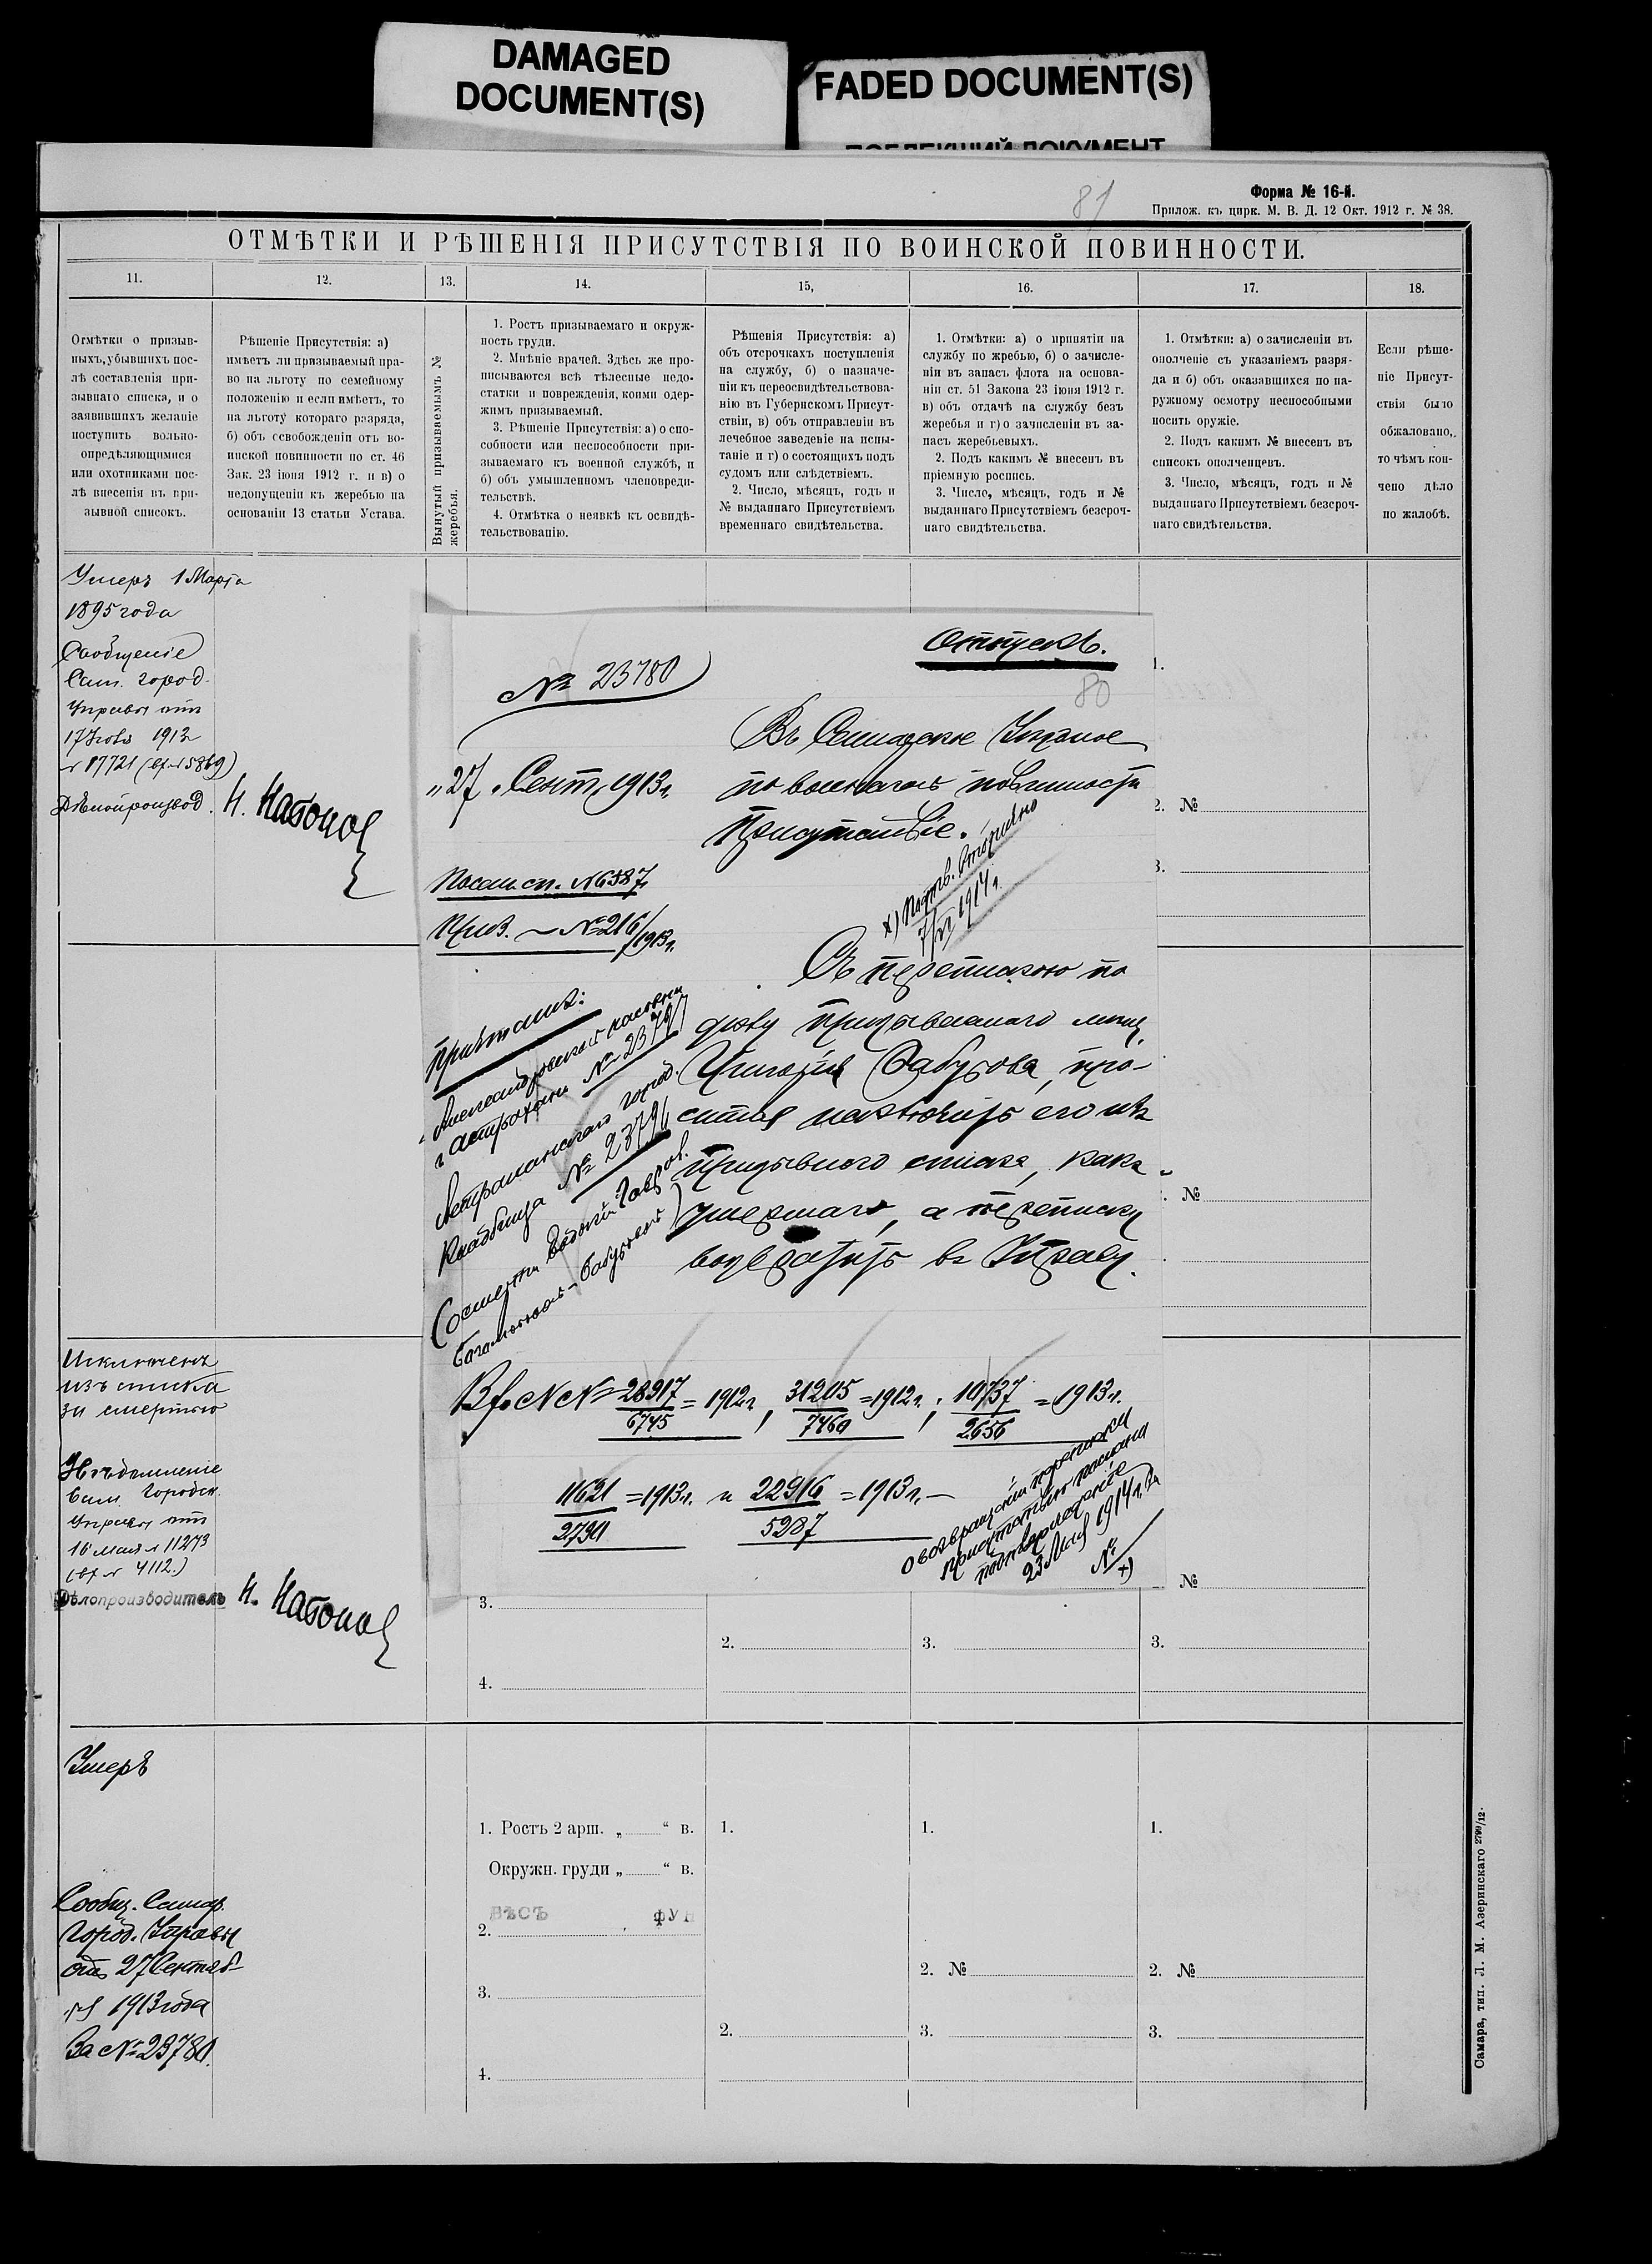 DAMAGED
DOCUMENT(S)
FADED DOCUMENT(S)
81
Форма № 16-й.
Прилож. къ цирк. М. В. Д. 12 Окт. 1912 г. № 38.
ОТМѢТКИ И РѢШЕНІЯ ПРИСУТСТВІЯ ПО ВОИНСКОЙ ПОВИННОСТИ.
11.
12.
13.
14.
15,
16.
17.
18.
Отмѣтки о призыв-
ныхъ, убывшихъ пос-
лѣ составленія при-
зывнаго списка, и о
заявившихъ желаніе
поступить вольно-
опредѣляющимися
или охотниками пос-
лѣ внесенія въ при-
зывной списокъ.
Рѣшеніе Присутствія: а)
имѣетъ ли призываемый пра-
во на льготу по семейному
положенію и если имѣетъ, то
на льготу котораго разряда,
б) объ освобожденіи отъ во-
инской повинности по ст. 46
Зак. 23 іюня 1912 г. и в) о
недопущеніи къ жеребью на
основаніи 13 статьи Устава.
Вынутый призываемымъ №
жеребья.
1. Ростъ призываемаго и окруж-
ность груди.
2. Мнѣніе врачей. Здѣсь же про-
писываются всѣ тѣлесные недо-
статки и поврежденія, коими одер-
жимъ призываемый.
3. Рѣшеніе Присутствія: а) о спо-
собности или неспособности при-
зываемаго къ военной службѣ, и
б) объ умышленномъ членовреди-
тельствѣ.
4. Отмѣтка о неявкѣ къ освидѣ-
тельствованію.
Рѣшенія Присутствія: а)
объ отсрочкахъ поступленія
на службу, б) о назначе-
ніи къ переосвидѣтельствова-
нію въ Губернскомъ Присут-
ствіи, в) объ отправленіи въ
лечебное заведеніе на испы-
таніе и г) о состоящихъ подъ
судомъ или слѣдствіемъ.
2. Число, мѣсяцъ, годъ и
№ выданнаго Присутствіемъ
временнаго свидѣтельства.
1. Отмѣтки: а) о принятіи на
службу по жребью, б) о зачисле-
ніи въ запасъ флота на основа-
ніи ст. 51 Закона 23 іюня 1912 г.
в) объ отдачѣ на службу безъ
жеребья и г) о зачисленіи въ за-
пасъ жеребьевыхъ.
2. Подъ какимъ № внесенъ въ
пріемную роспись.
3. Число, мѣсяцъ, годъ и №
выданнаго Присутствіемъ безсроч-
наго свидѣтельства.
1. Отмѣтки: а) о зачисленіи въ
ополченіе съ указаніемъ разря-
да и б) объ оказавшихся по на-
ружному осмотру неспособными
носить оружіе.
2. Подъ какимъ № внесенъ въ
списокъ ополченцевъ.
3. Число, мѣсяцъ, годъ и №
выданнаго Присутствіемъ безсроч-
наго свидѣтельства.
Если рѣше-
ніе Присут-
ствія было
обжаловано,
то чѣмъ кон-
чено дѣло
по жалобѣ.
Умеръ 1 Марта
1895 года
Сообщеніе
Сам. Город.
Управы отъ
1913
№ 17721 (вх. № 5869)
Дѣлопроизвод.
Отпускъ.
80
№ 23780
Въ Самарское Уѣздное
"27" Сент. 1913 г.
по воинской повинности
Присутствіе.
Посем. сп. № 6587
Приз. — № 216/1913 г.
7/VI 1914 г.
Съ перепискою по
дѣлу призываемаго мѣщ.
Григорія Бабусова, про-
ситъ исключить его изъ
призывного списка, какъ
умершаго, а переписку
возвратить въ Управу.
Причтамъ:
г. Астрахани № 23797
Астраханского город.
Кладбища № 23796
Вх. №№ 28917/6745 = 1912 г., 31205/7460 = 1912 г.; 10737/2656 = 1913 г.
11621/2730 = 1913 г. и 22916/5287 = 1913 г. —
О возвращеніи переписки
подтвержденіе
1914 г. за
№
х)
1.
2. №
3.
№
№
Исключенъ
изъ списка
за смертью
Увѣдомленіе
Сам. Городск.
Управы отъ
16 мая № 11273
(вх. № 4112.)
Дѣлопроизводитель
3.
4.
2.
3.
3.
Умеръ
Сообщ. Самар.
Город. Управы
отъ 27 Сентяб-
ря 1913 года
За № 23780.
1. Ростъ 2 арш. „ “ в.
Окружн. груди „ “ в.
ВѢСЪ ФУН
2.
3.
4.
1.
2.
1.
2. №
3.
1.
2. №
3.
Самара, тип. Л. М. Азеринскаго 2799/12.